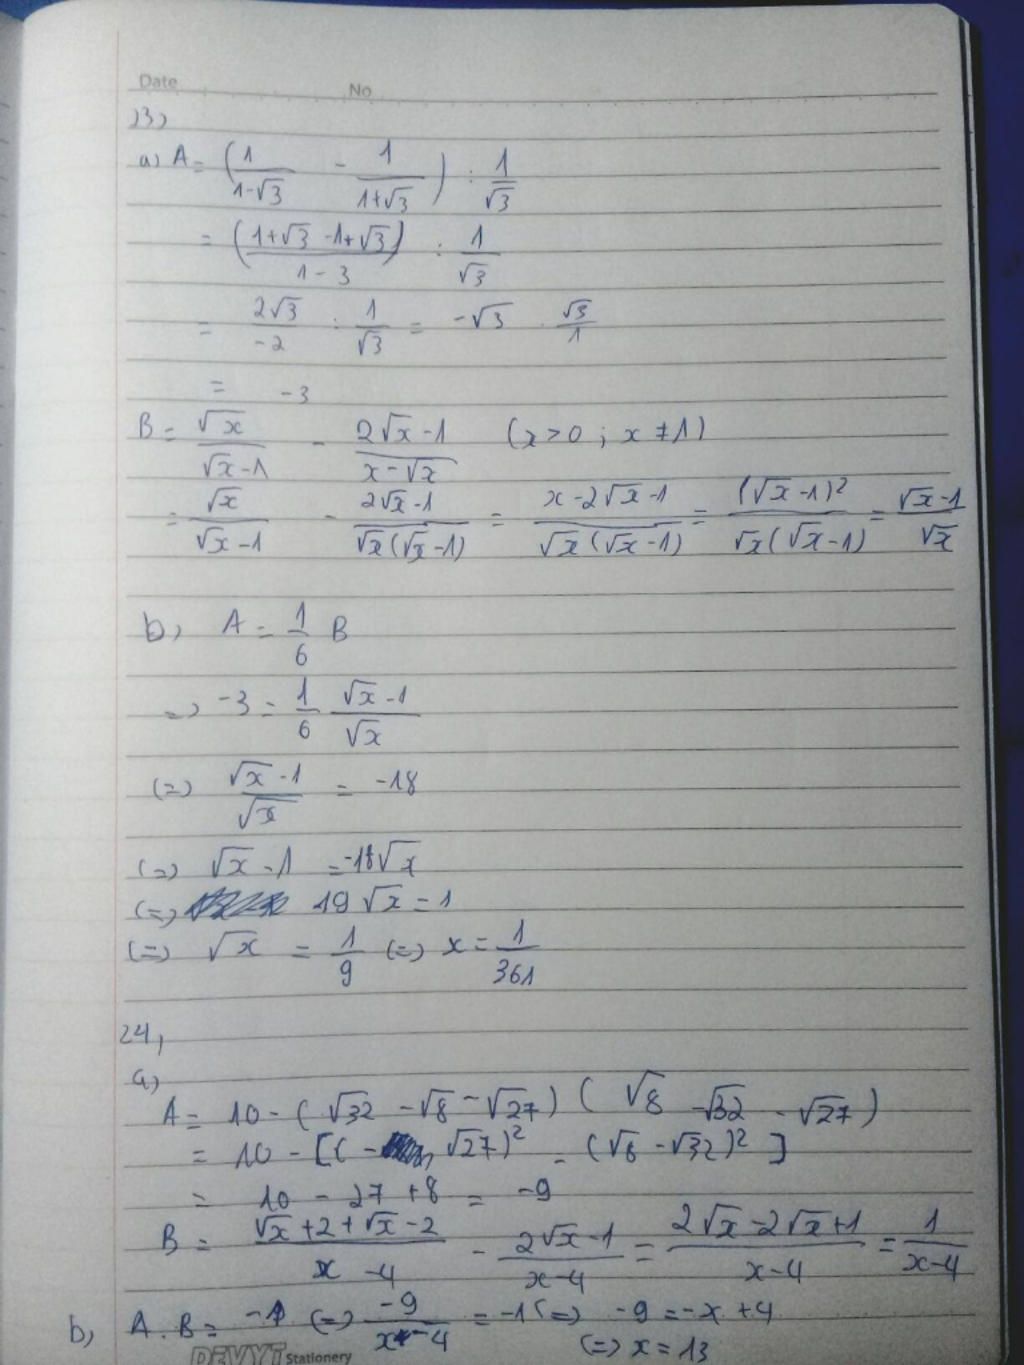 Date No
23)
a) A = (1/(1-√3) - 1/(1+√3)) : 1/√3
= ((1+√3 -1+√3)/(1-3)) : 1/√3
= 2√3/-2 : 1/√3 = -√3 . √3/1
= -3
B = √x/(√x-1) - (2√x-1)/(x-√x) (x>0 ; x≠1)
= √x/(√x-1) - (2√x-1)/(√x(√x-1)) = (x-2√x-1)/(√x(√x-1)) = (√x-1)²/(√x(√x-1)) = (√x-1)/√x
b) A = 1/6 B
=> -3 = 1/6 (√x-1)/√x
(=) (√x-1)/√x = -18
(=) √x-1 = -18√x
(=) 19√x = 1
(=) √x = 1/9 (=) x = 1/361
24,
a)
A = 10 - (√32 - √8 - √27) (√8 - √32 - √27)
= 10 - [(-√27)² - (√8 - √32)²]
= 10 - 27 + 8 = -9
B = (√x+2+√x-2)/(x-4) - (2√x-1)/(x-4) = (2√x-2√x+1)/(x-4) = 1/(x-4)
b) A.B = -1 (=) -9/(x-4) = -1 (=) -9 = -x+4
(=) x = 13
DEVYT Stationery